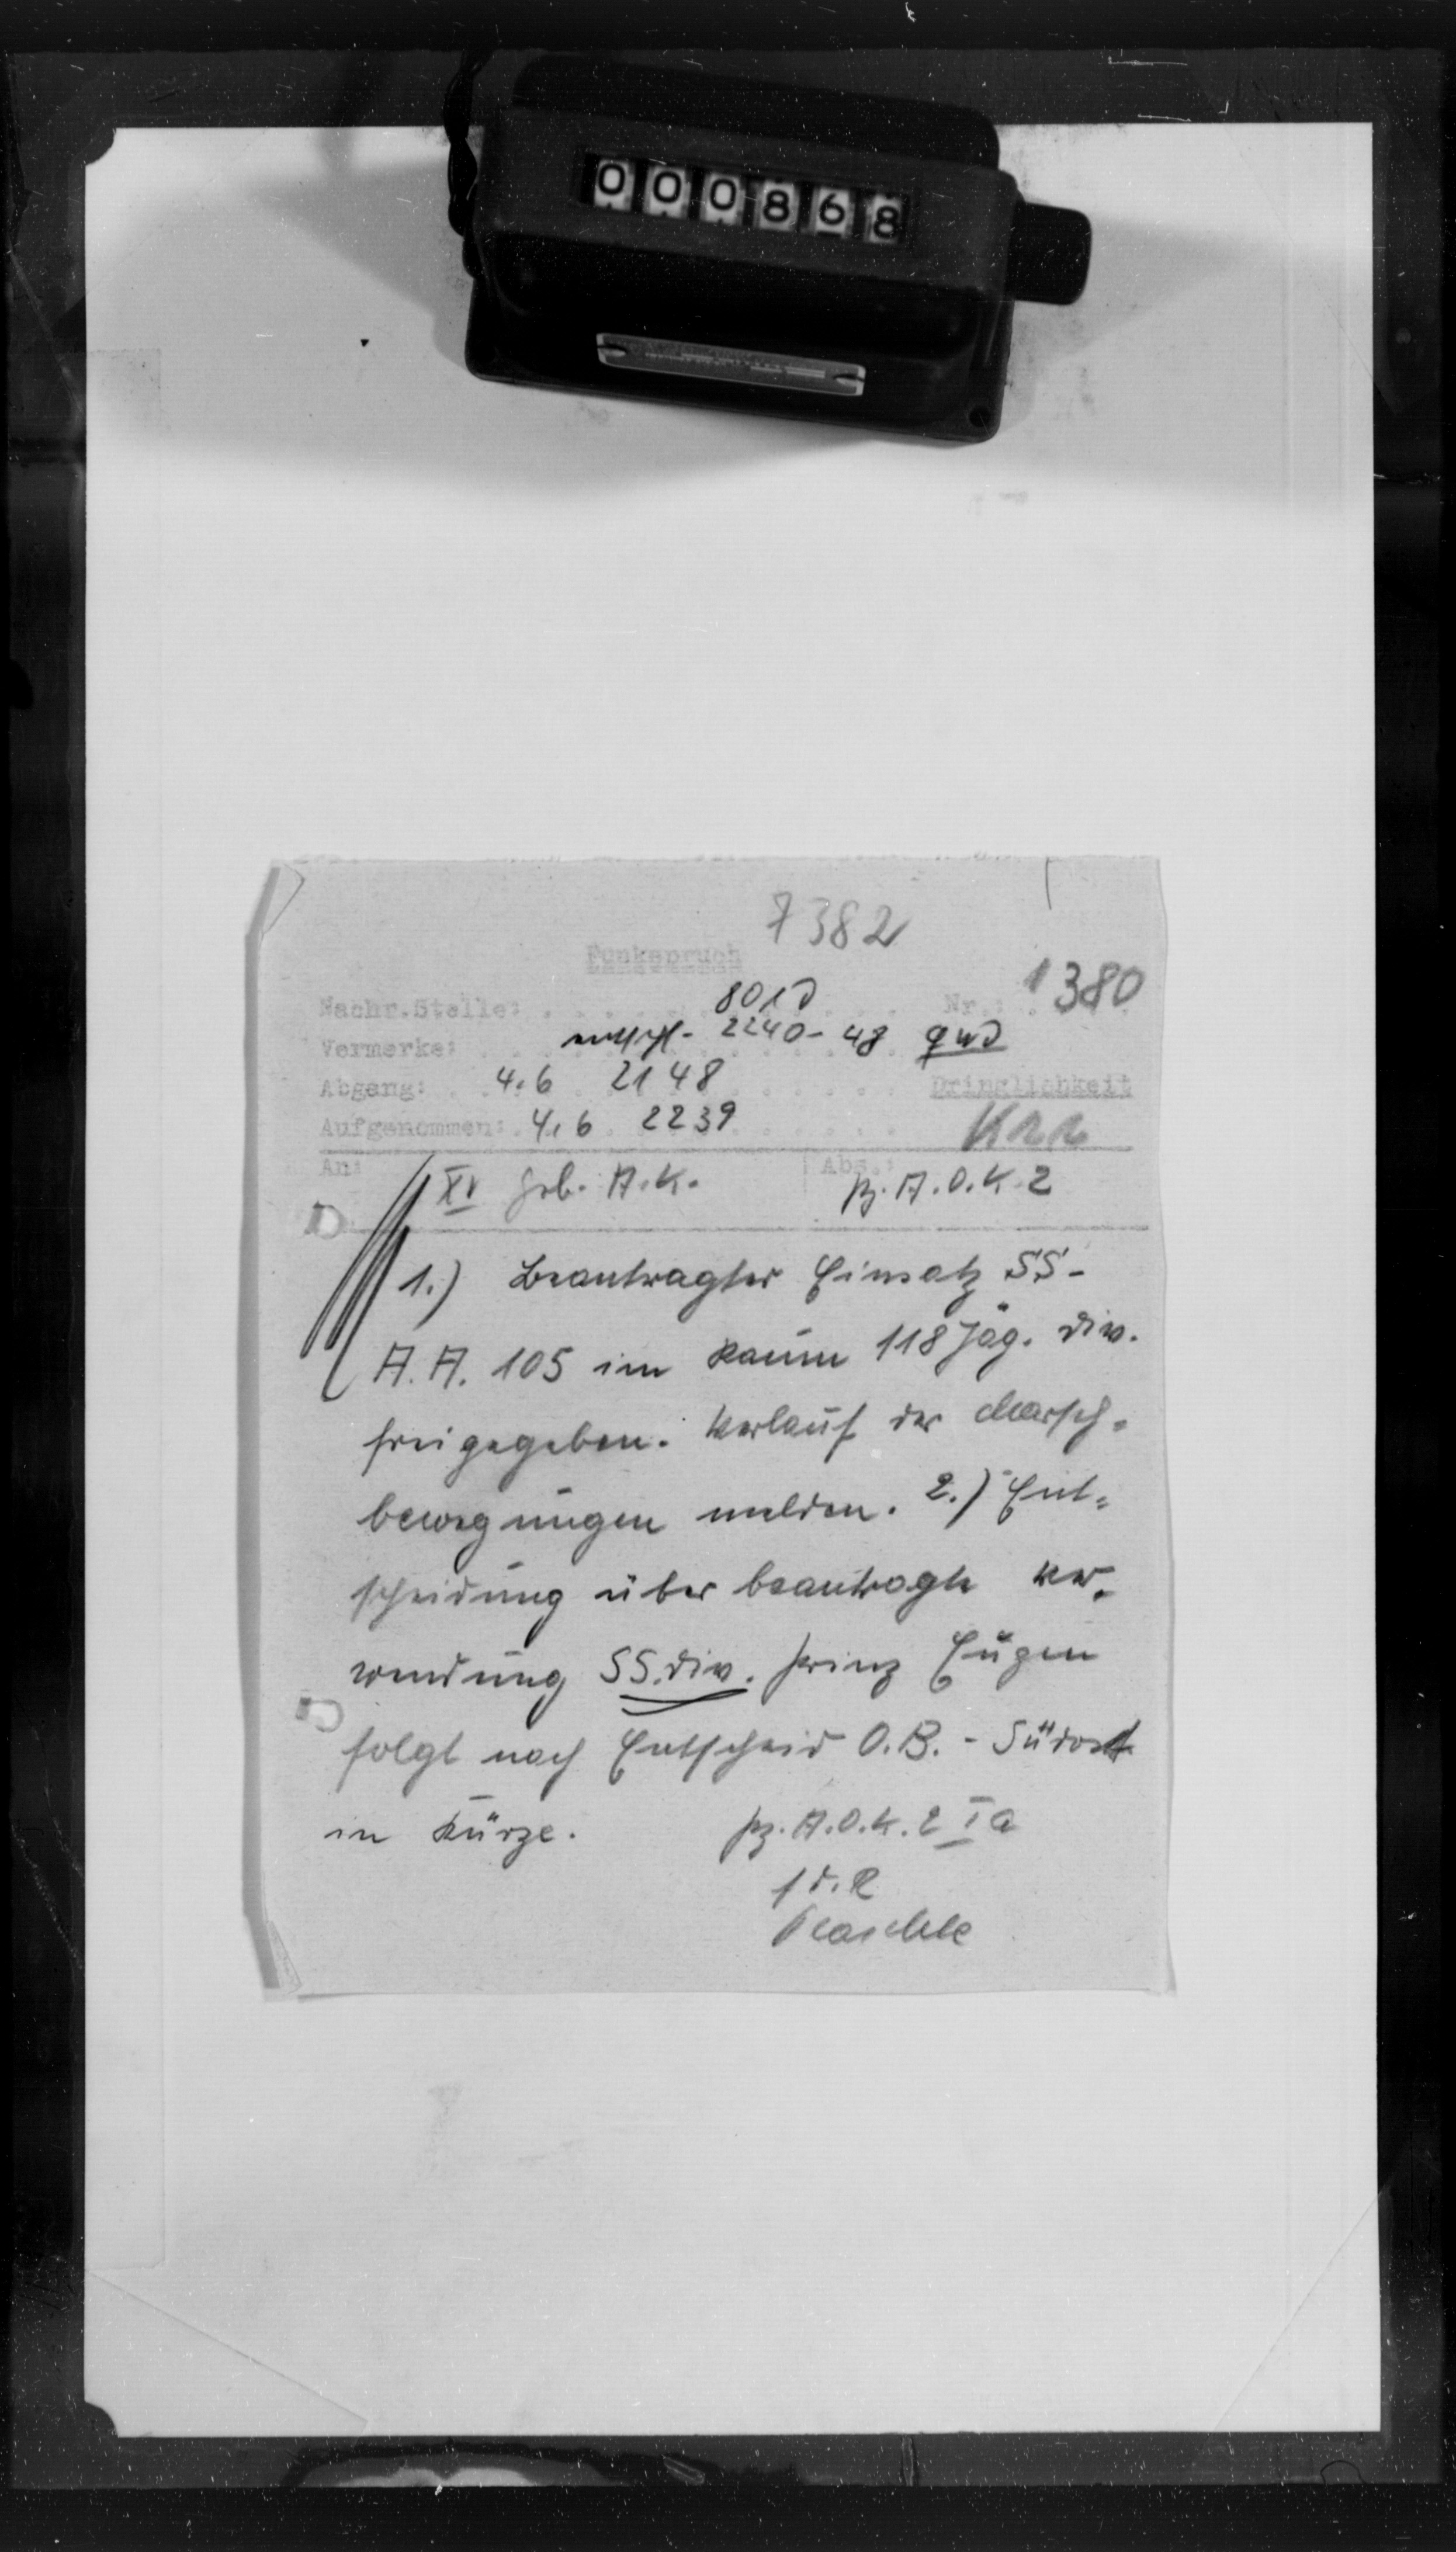 000868
7382
Funkspruch
1380
Nachr.Stelle: 801 D Nr.:
Vermerke: entschl. 2240-48 qwd
Abgang: 4.6 2148 Dringlichkeit
Aufgenommen: 4.6 2239 KRR
An: XV Geb. A.K. Abs.: Pz. A.O.K. 2
1.) Beantragter Einsatz SS-
A.A. 105 im Raum 118 Jäg. Div.
freigegeben. Verlauf der Marsch-
bewegungen melden. 2.) Ent-
scheidung über beantragte Ver-
wendung SS.Div. Prinz Eugen
folgt nach Entscheid O.B.-Südost
in Kürze. Pz. A.O.K. 2 Ia
f d. R